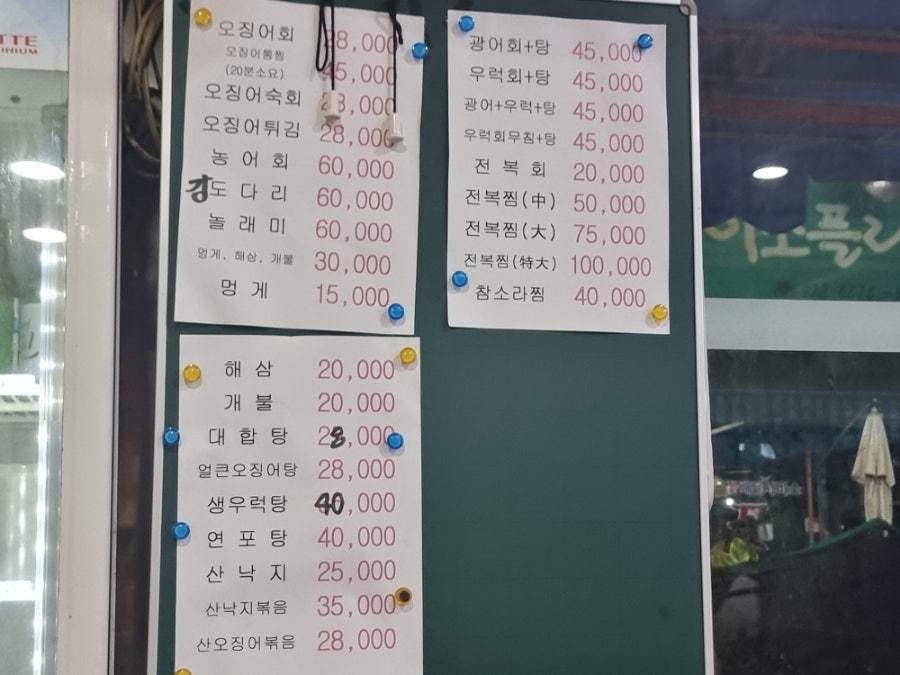 오징어회 28,000
오징어통찜 45,000
(20분소요)
오징어숙회 28,000
오징어튀김 28,000
농어회 60,000
강도다리 60,000
놀래미 60,000
멍게, 해삼, 개불 30,000
멍게 15,000
광어회+탕 45,000
우럭회+탕 45,000
광어+우럭+탕 45,000
우럭회무침+탕 45,000
전복회 20,000
전복찜(中) 50,000
전복찜(大) 75,000
전복찜(特大) 100,000
참소라찜 40,000
해삼 20,000
개불 20,000
대합탕 28,000
얼큰오징어탕 28,000
생우럭탕 40,000
연포탕 40,000
산낙지 25,000
산낙지볶음 35,000
산오징어볶음 28,000